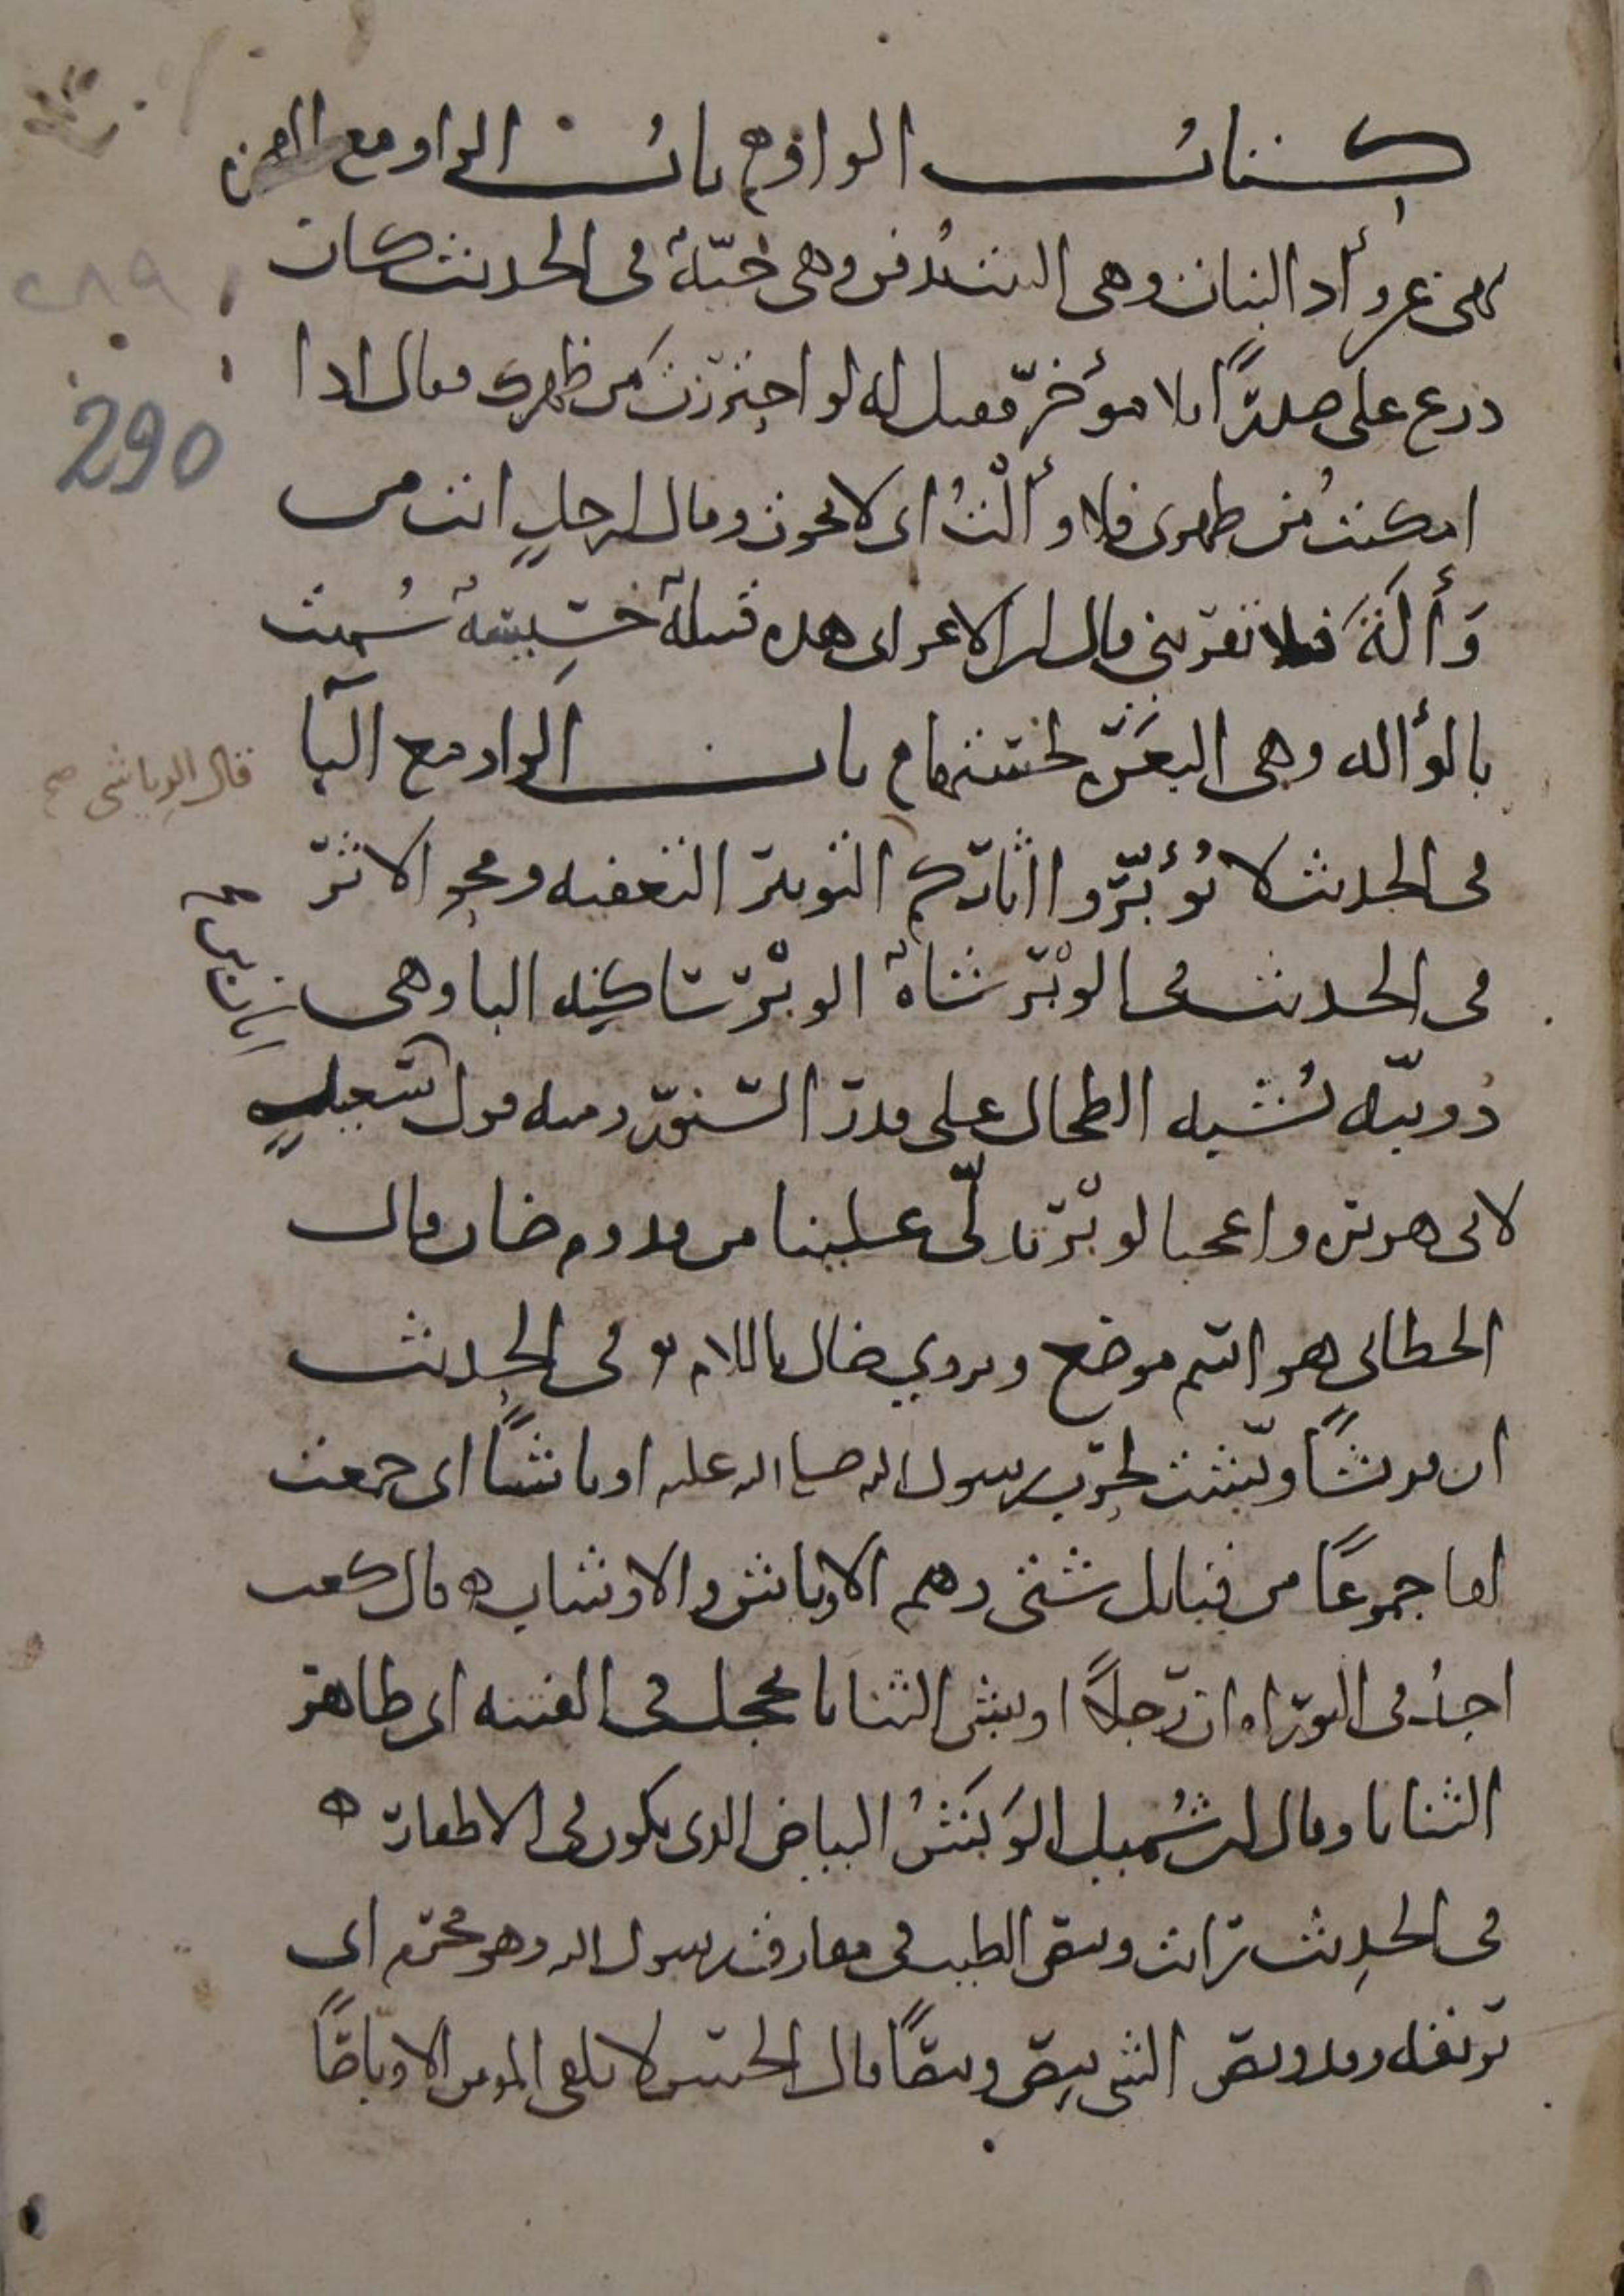 كتاب الواو باب الواو مع الهمزة
نهى عن وأد البنات وهي البنت تُدفن وهي حيّةٌ في الحديث كان
درع علي صدرًا بلا مؤخر فقيل له لو احترزت من ظهرك فقال اذا
امكنتُ من ظهري فلا وألْتُ اى لا نجوت وقال لرجلٍ انت من
وَأْلَةَ فلا تقربني قال ابن الاعرابي هذه قبيلةٌ خسيسةٌ سُميت
بالوألة وهي البعرة لخستها باب الواو مع البا
قال الرياشي صح
في الحديث لا تُوَبِّروا اثاركم التوبير التعفيه ومحو الاثر
في الحديث في الوبْر شاةٌ الوبْر ساكنه البا وهي
دُويبّه تُشبه الطحال على قدر السنّور ومنه قول
لابي هريرة واعجبا لوبْر تدلّى علينا من قدوم ضان قال
الخطابي هو اسم موضع ويروي ضال باللام في الحديث
ان قريشًا وبّشت لحرب رسول الله صلى الله عليه اوباشًا اى جمعت
لها جموعًا من قبايل شتى وهم الاوباش والاوشاب ه قال كعب
اجدُ في التوراه ان رجلًا اوبش الثنايا محجل في الفتنه اى ظاهر
الثنايا وقال ابن شُميل الوَبَشُ البياض الذي يكون في الاظفار ه
في الحديث رايت وبيص الطيب في مفارق رسول الله وهو محرم اى
بريقه وقد وبص الشي يبِص وبيصًا قال الحسن لا تلقى المومن الا وبّاصًا
290